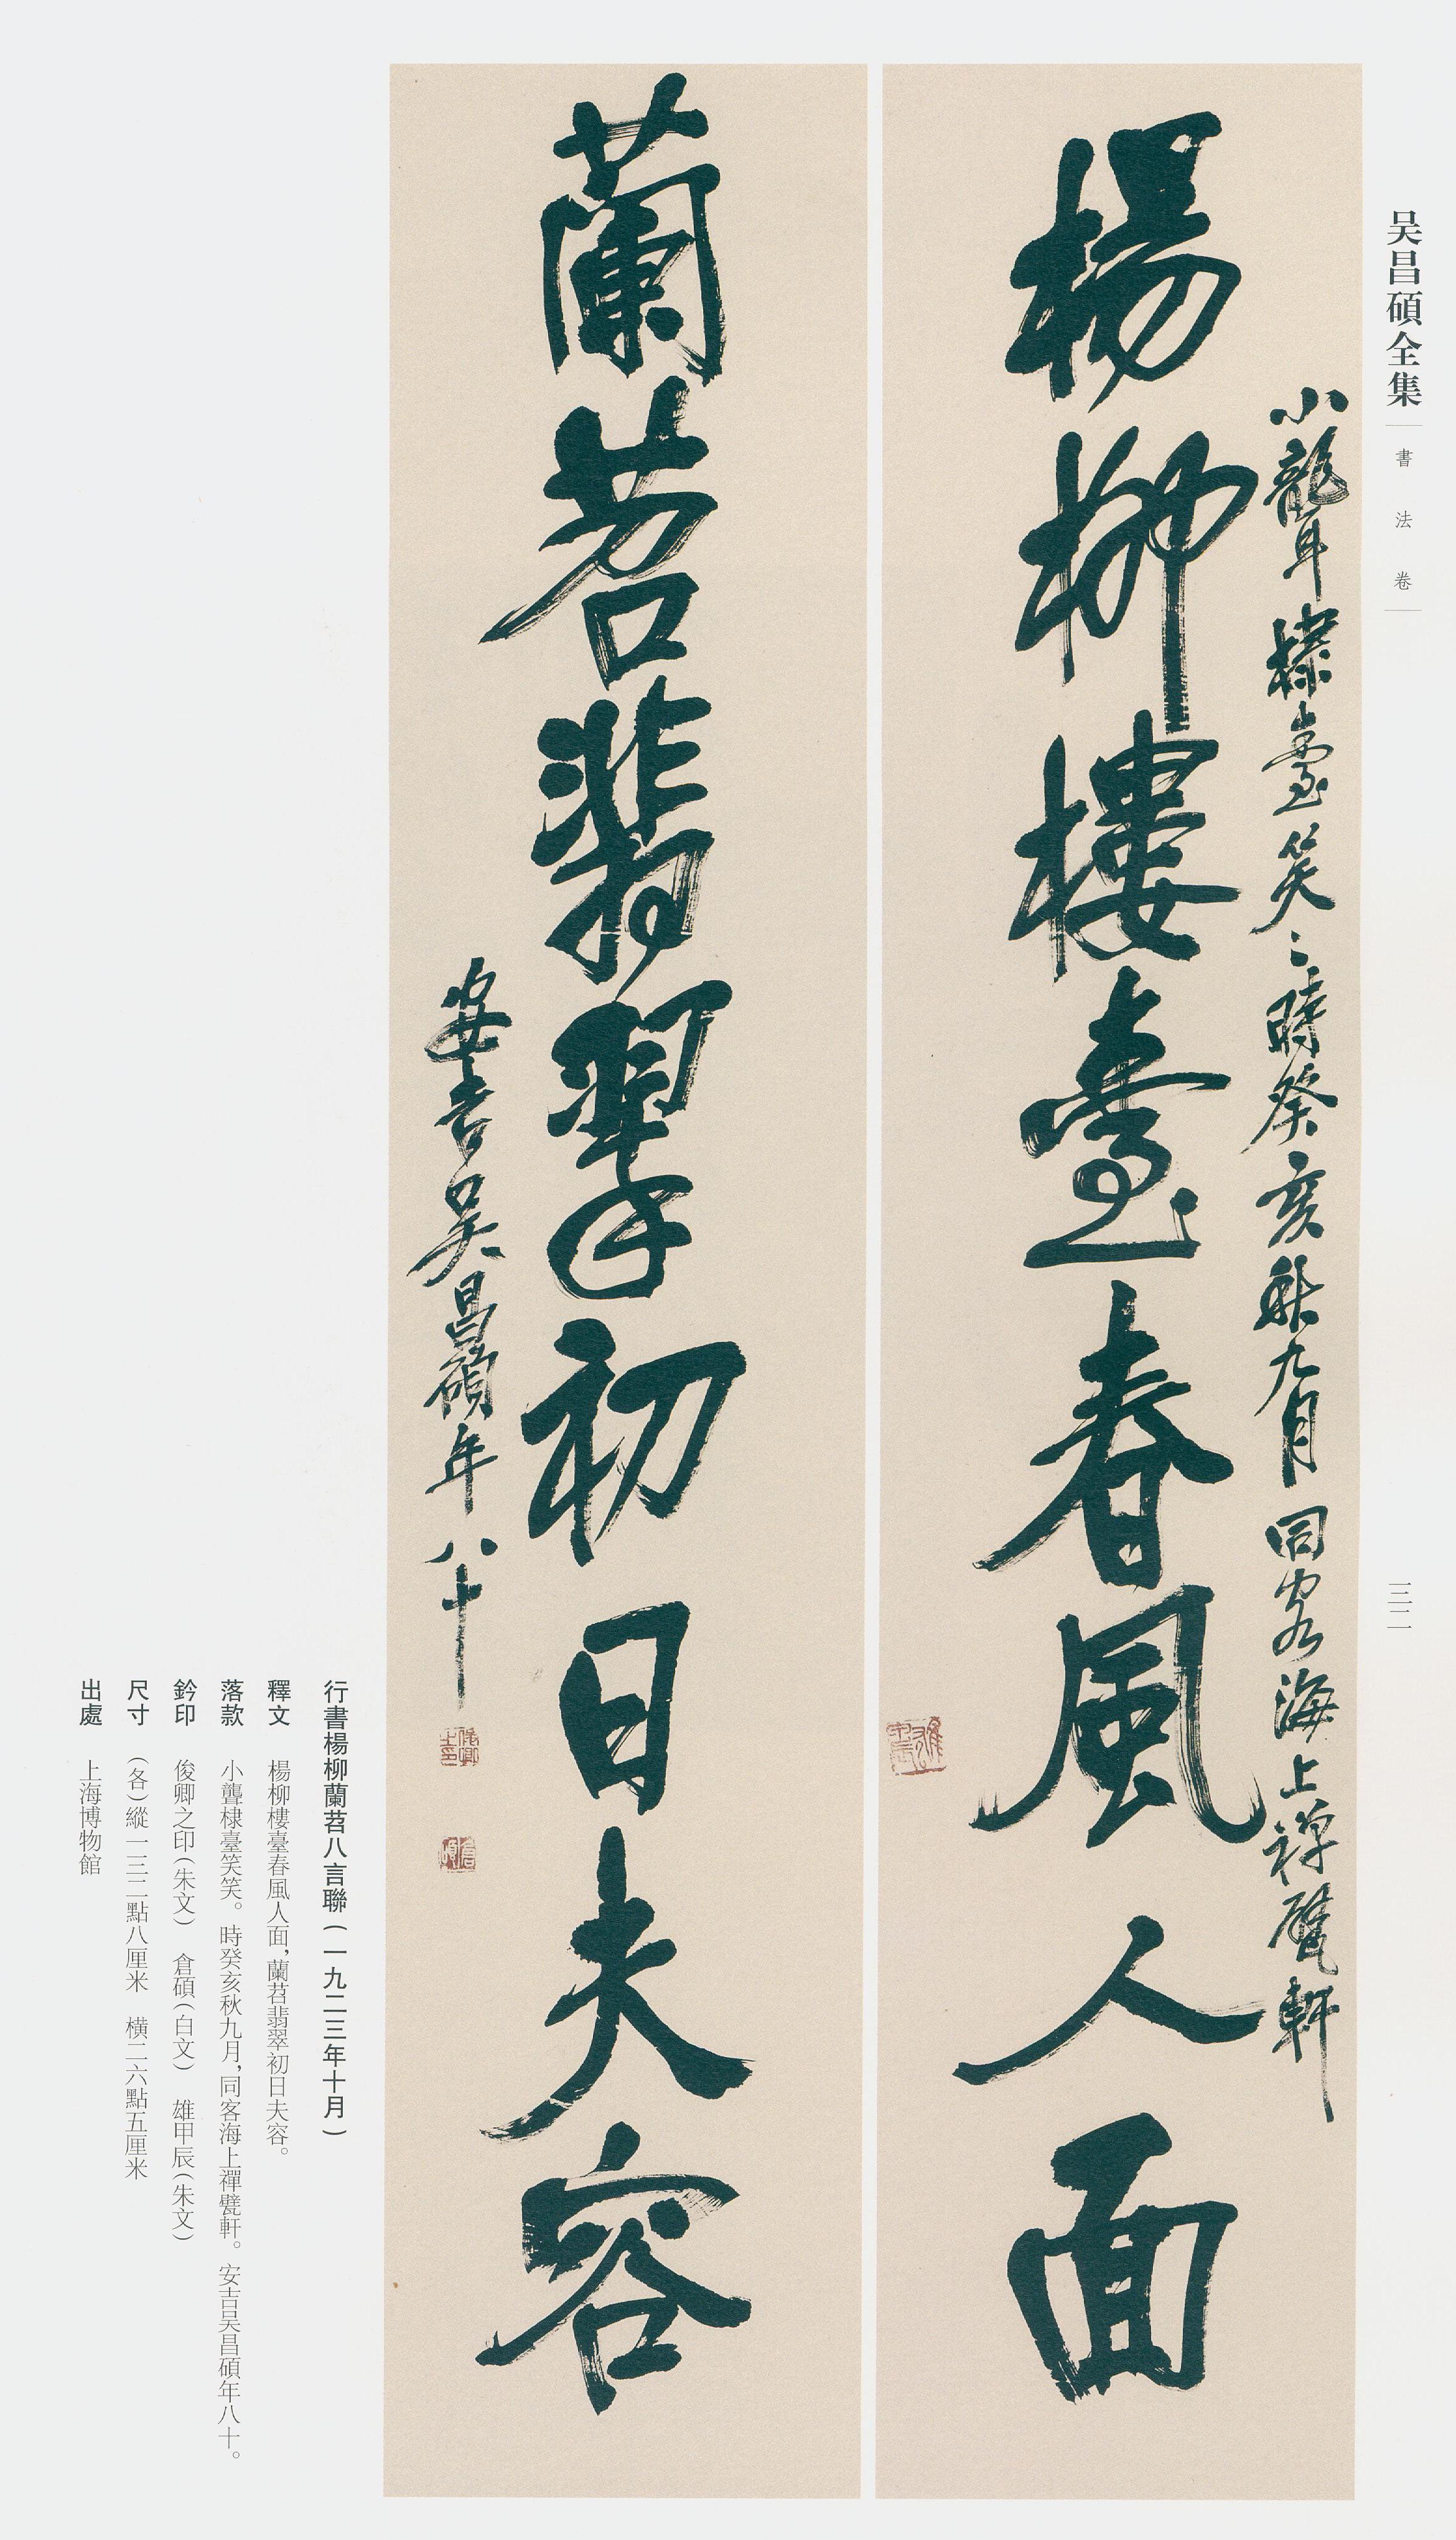 吴昌碩全集
書法卷
三二
小聾棣臺笑〻時癸亥秋九月同客海上禪甓軒
楊柳樓臺春風人面
蘭苕翡翠初日夫容
安吉吴昌碩年八十
行書楊柳蘭苕八言聯（一九二三年十月）
釋文　楊柳樓臺春風人面，蘭苕翡翠初日夫容。
落款　小聾棣臺笑笑。時癸亥秋九月，同客海上禪甓軒。安吉吴昌碩年八十。
鈐印　俊卿之印（朱文）　倉碩（白文）　雄甲辰（朱文）
尺寸　（各）縱一三二點八厘米　橫二六點五厘米
出處　上海博物館
雄甲辰
俊卿之印
倉碩